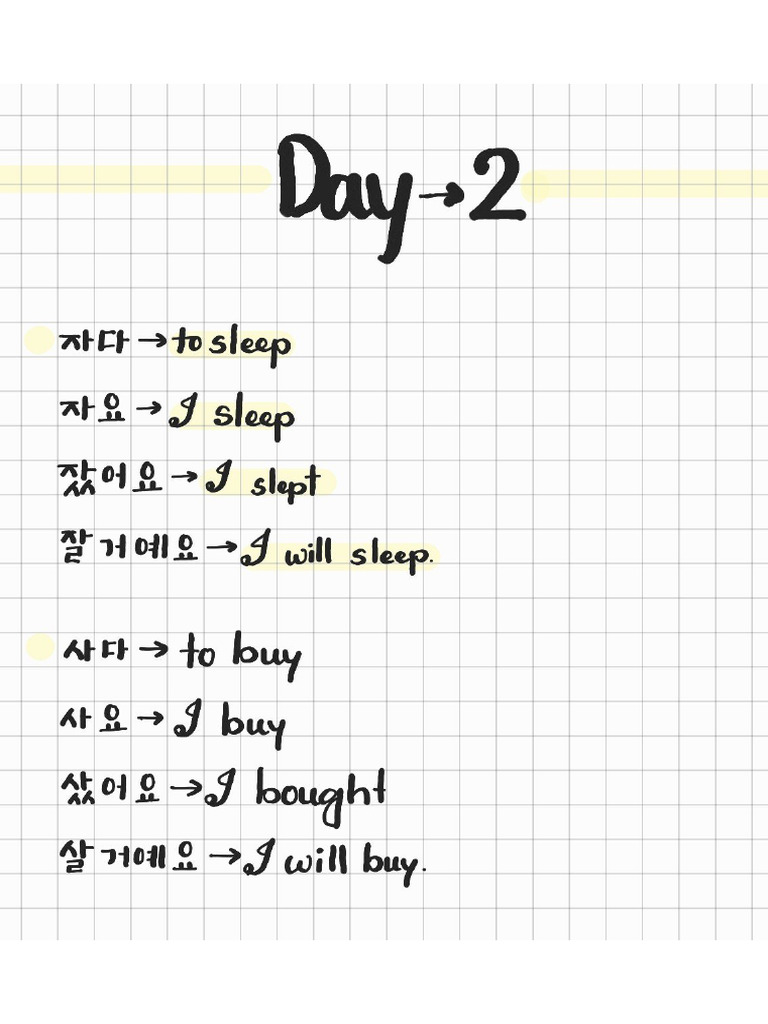 Day → 2
자다 → to sleep
자요 → I sleep
잤어요 → I slept
잘 거예요 → I will sleep.
사다 → to buy
사요 → I buy
샀어요 → I bought
살 거예요 → I will buy.